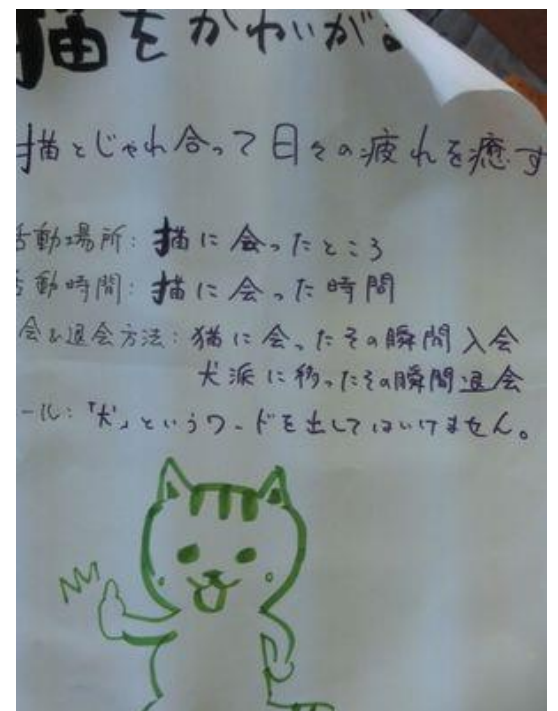 猫をかわいが
描とじゃれ合って日々の疲れを癒す
活動場所：描に会ったところ
活動時間：描に会った時間
会&退会方法：猫に会ったその瞬間入会
犬派に移ったその瞬間退会
ール：「犬」というワードを出してはいけません。